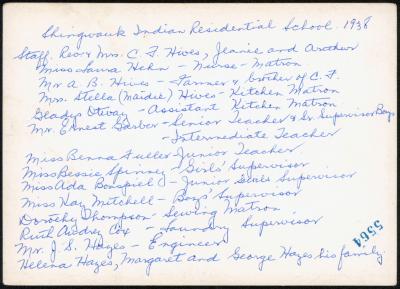 Shingwauk Indian Residential School. 1938
Staff. Rev & Mrs. C. F. Hives, Jeanie and Arthur
Miss Laura Hehn - Nurse - Matron
Mr A. B. Hives - Farmer & brother of C. F.
Mrs. Stella (Maidie) Hives - Kitchen Matron
Gladys Otway - Assistant Kitchen Matron
Mr. Ernest Barber - Senior Teacher & Sr Supervisor Boys
- Intermediate Teacher
Miss Benna Fuller Junior Teacher
Miss Bessie Spinney - Girls' Supervisor
Miss Ada - Junior Girls Supervisor
Miss Kay Mitchell - Boys' Supervisor
Dorothy Thompson - Sewing Matron
Ruth Audrey Cox - Laundry Supervisor
Mr. J. S. Hayes - Engineer
Helena Hayes, Margaret and George Hayes his family.
5561